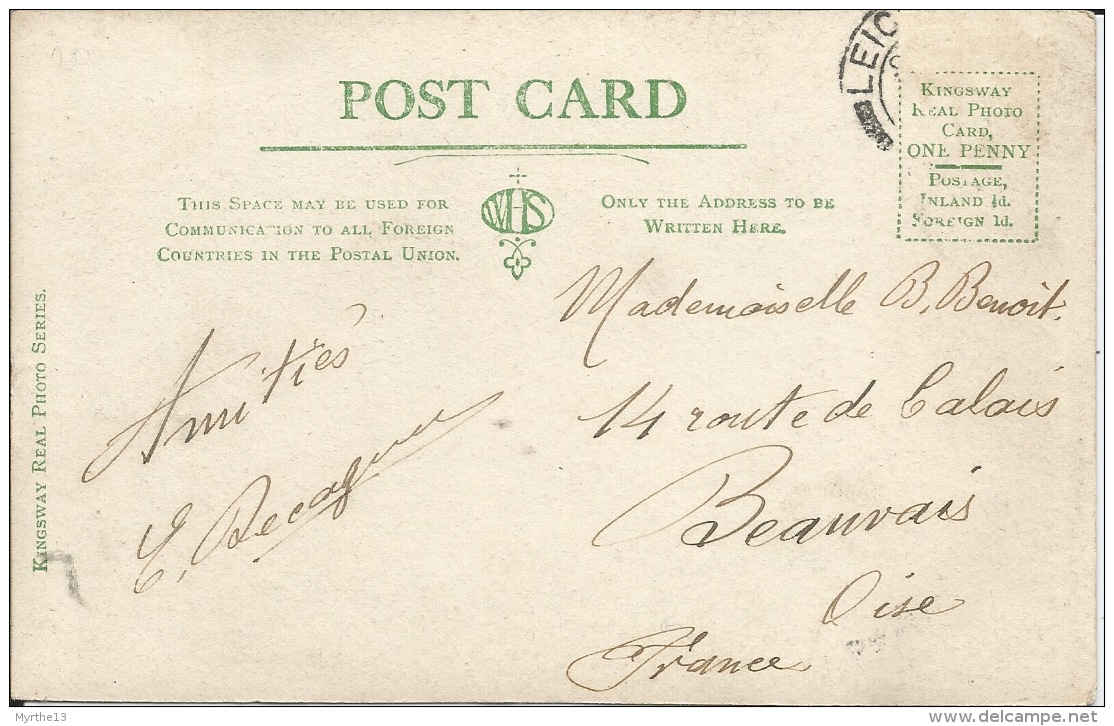 POST CARD
LEIC
KINGSWAY
REAL PHOTO
CARD,
ONE PENNY
POSTAGE,
INLAND ½d.
FOREIGN 1d.
THIS SPACE MAY BE USED FOR
COMMUNICATION TO ALL FOREIGN
COUNTRIES IN THE POSTAL UNION.
WHS
ONLY THE ADDRESS TO BE
WRITTEN HERE.
KINGSWAY REAL PHOTO SERIES.
Amitiés
E.
Mademoiselle B. Benoit.
14 route de Calais
Beauvais
Oise
France
Myrthe13
delcampe.net